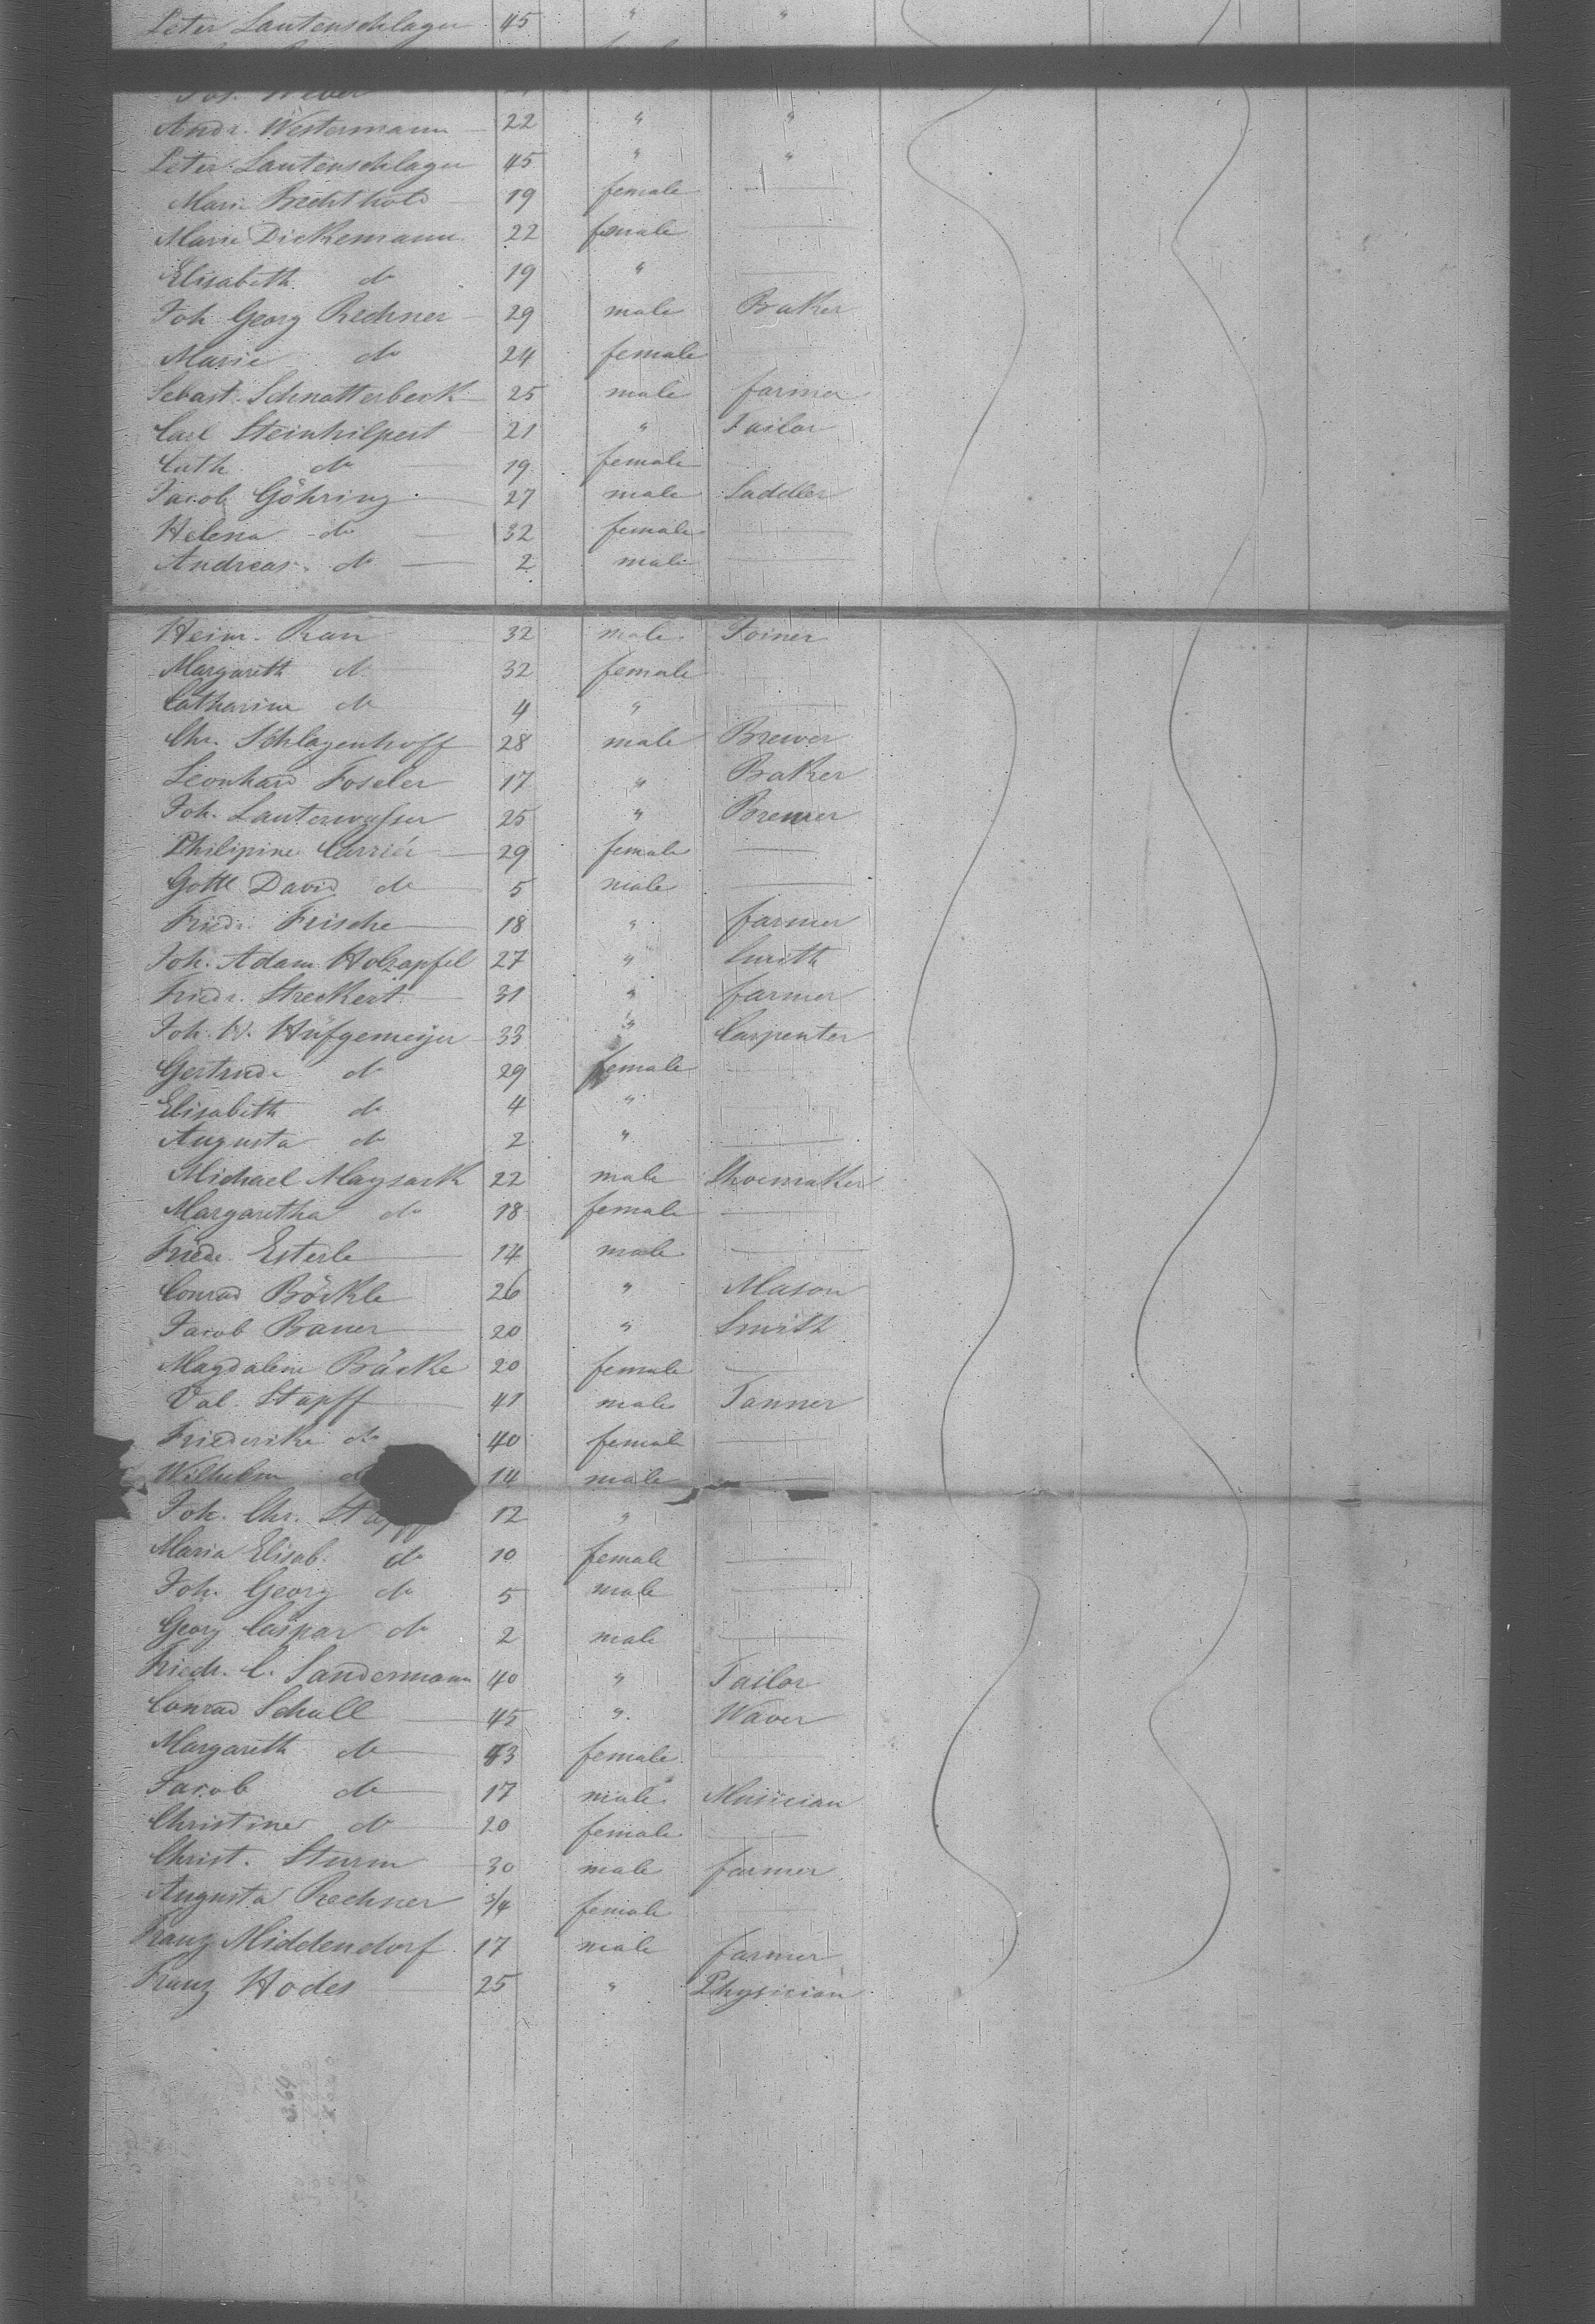 Peter Lautenschlager 45 " "
Jos. Weber
Andr. Westermann 22 " "
Peter Lautenschlager 45 " "
Marie Bechthold 19 female
Marie Dickemann 22 female
Elisabeth do 19 "
Joh Georg Rechner 29 male Baker
Marie do 24 female
Sebast. Schnatterbeck 25 male farmer
Carl Steinhilpert 21 " Tailor
Cath. do 19 female
Jacob Göhring 27 male Saddler
Helena do 32 female
Andreas do 2 male
Heinr. Rau 32 male Joiner
Margareth do 32 female
Catharine do 4 "
Chr. Schlagenhoff 28 male Brewer
Leonhard Foseler 17 " Baker
Joh. Lauterwasser 25 " Brewer
Philipine Carriér 29 female
Gottl David do 5 male
Friedr. Frische 18 " farmer
Joh. Adam Holzapfel 27 " Smith
Friedr. Streckert 31 " farmer
Joh. W. Hüfgemeijer 33 " Carpenter
Gertrude do 29 female
Elisabeth do 4 "
Augusta do 2 "
Michael Maysack 22 male Shoemaker
Margaretha do 18 female
Friedr. Esterle 14 male
Conrad Böckle 26 " Mason
Jacob Bauer 20 " Smith
Magdalene Bäcke 20 female
Val. Stapff 41 male Tanner
Friederike do 40 female
Wilhelm do 14 male
Joh. Chr. Stapff 12 "
Maria Elisab. do 10 female
Joh. Georg do 5 male
Georg Caspar do 2 male
Friedr. C. Sandermann 40 " Tailor
Conrad Schall 45 " Waver
Margareth do 43 female
Jacob do 17 male Musician
Christine do 20 female
Christ. Sturm 30 male farmer
Augusta Rechner 3/4 female
Franz Middendorf 17 male farmer
Franz Hodes 25 " Physician